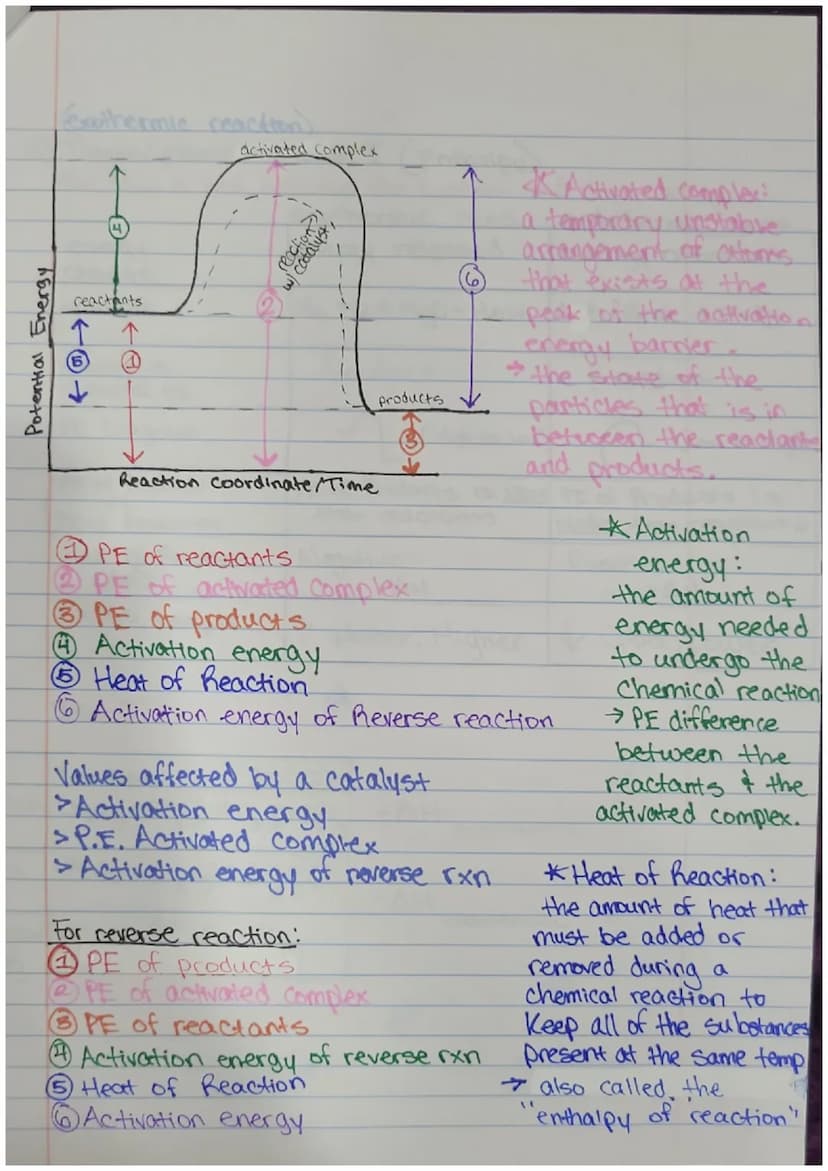 (exothermic reaction)
activated complex
4
reactants
reaction →
w/ catalyst
2
6
5
1
products
3
Potential Energy
Reaction Coordinate/Time
* Activated complex:
a temporary unstable
arrangement of atoms
that exists at the
peak of the activation
energy barrier.
→ the state of the
particles that is in
between the reactants
and products.
① PE of reactants
② PE of activated complex
③ PE of products
④ Activation energy
⑤ Heat of Reaction
⑥ Activation energy of Reverse reaction
* Activation
energy:
the amount of
energy needed
to undergo the
chemical reaction
→ PE difference
between the
reactants & the
activated complex.
Values affected by a catalyst
> Activation energy
> P.E. Activated complex
> Activation energy of reverse rxn
For reverse reaction:
① PE of products
② PE of activated complex
③ PE of reactants
④ Activation energy of reverse rxn
⑤ Heat of Reaction
⑥ Activation energy
* Heat of Reaction:
the amount of heat that
must be added or
removed during a
chemical reaction to
keep all of the substances
present at the same temp
→ also called the
"enthalpy of reaction"